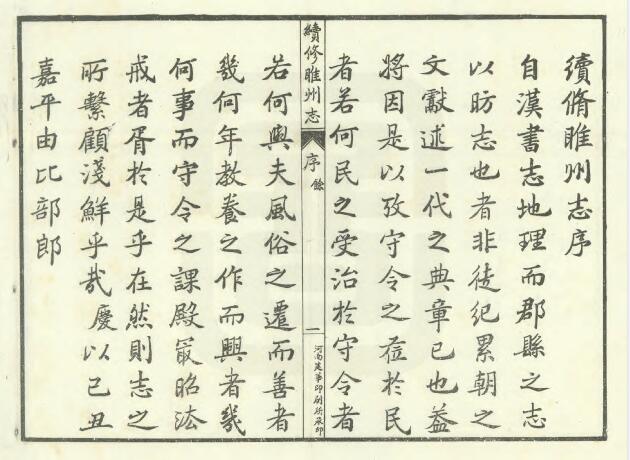 續脩睢州志序
自漢書志地理而郡縣之志
以昉志也者非徒紀累朝之
文獻述一代之典章已也葢
將因是以攷守令之蒞於民
者若何民之受治於守令者
續修睢州志
序
餘
一
河南建華印刷所承印
若何與夫風俗之遷而善者
幾何年教養之作而興者幾
何事而守令之課殿㝡昭法
戒者胥於是乎在然則志之
所繫顧淺鮮乎哉慶以己丑
嘉平由比部郎